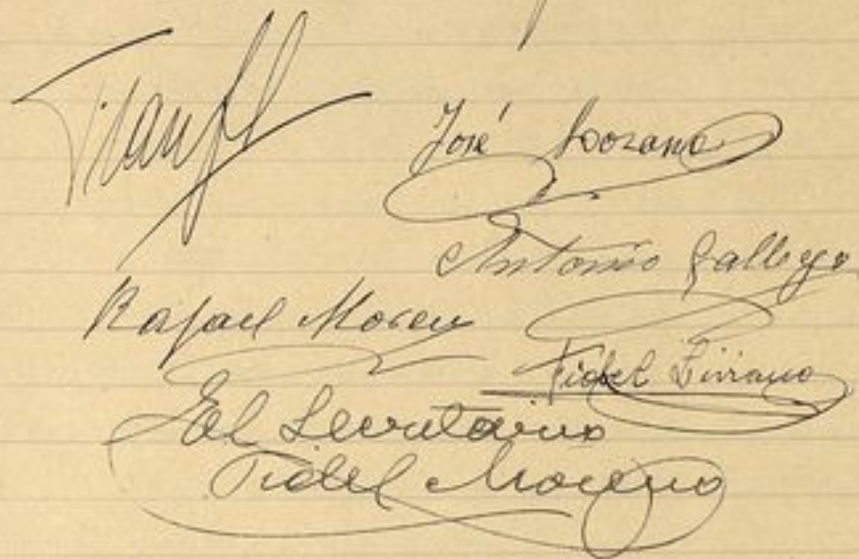 José Lozano
Antonio Gallego
Rafael Moreno
Fidel
El Secretario
Fidel Moreno